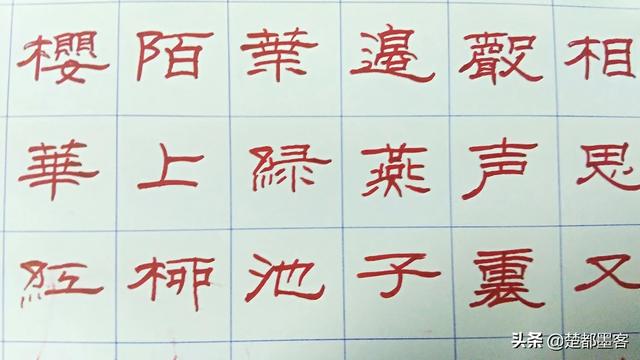 櫻華紅
陌上柳
葉緑池
邊燕子
聲声裏
相思又
头条 @楚都墨客